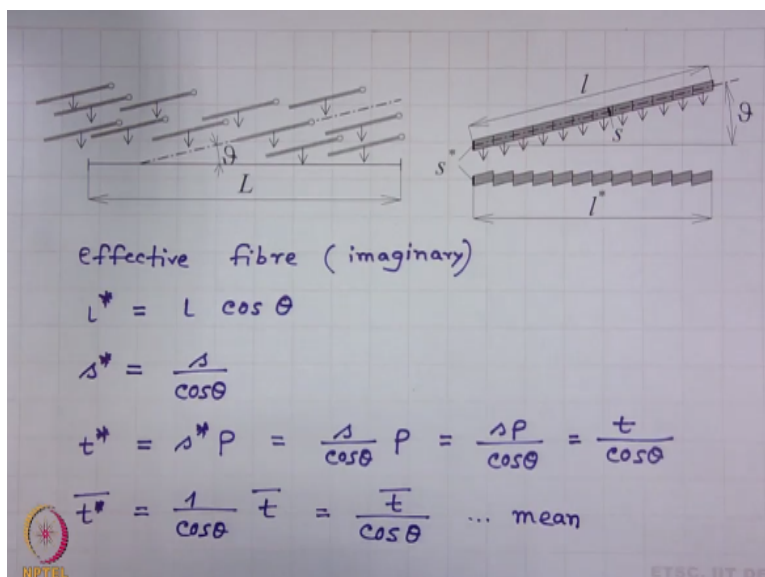 l
ϑ
s
ϑ
s*
L
l*
effective fibre (imaginary)
l* = l cos θ
s* = s / cosθ
t* = s* ρ = s / cosθ ρ = sρ / cosθ = t / cosθ
t̅* = 1 / cosθ t̅ = t̅ / cosθ ... mean
NPTEL
ETSC, IIT DE